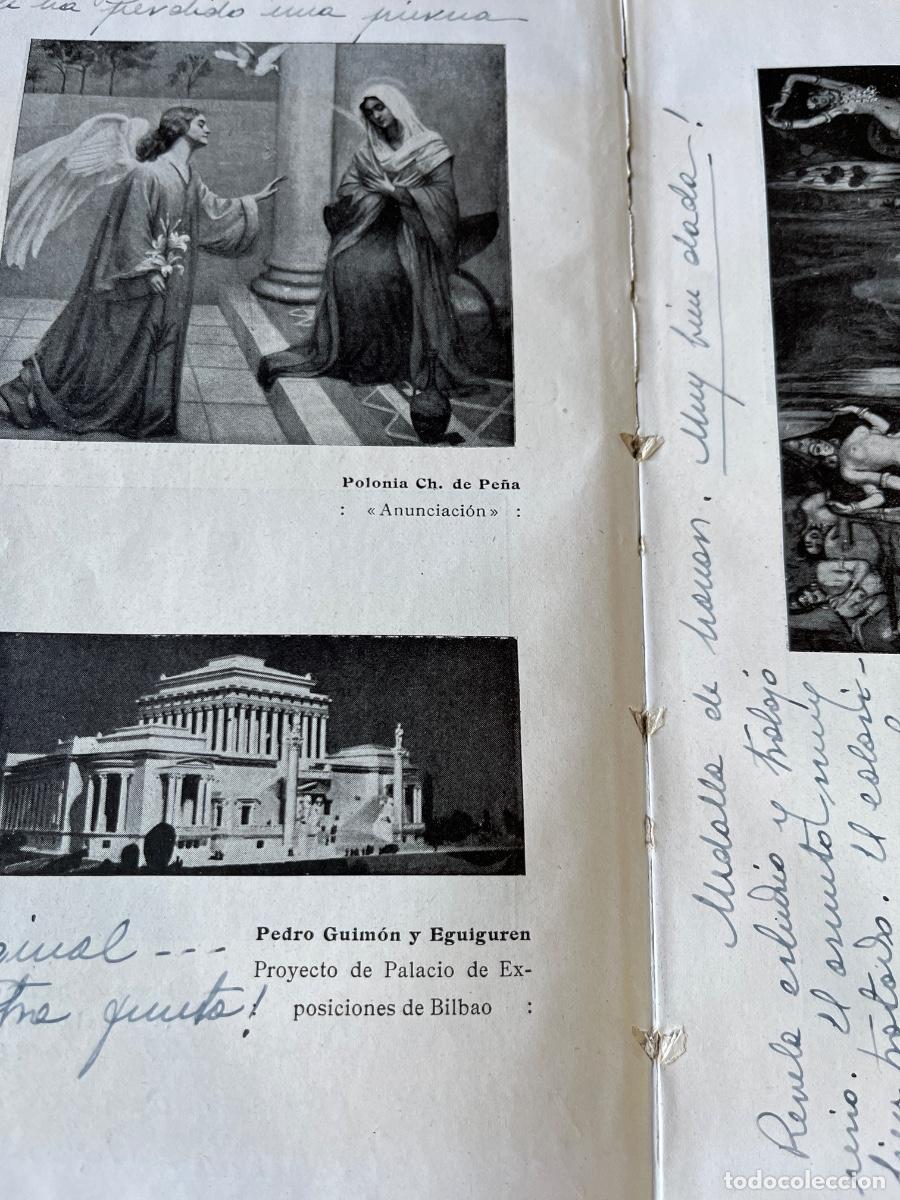 ha perdido una pierna
Polonia Ch. de Peña
: «Anunciación» :
Pedro Guimón y Eguiguren
Proyecto de Palacio de Ex-
posiciones de Bilbao :
ginal ---
tra punta!
Medalla de honor. Muy bien dada!
Revela estudio y trabajo
nerio. El asunto muy
tratado. El colori-
todocoleccion.net